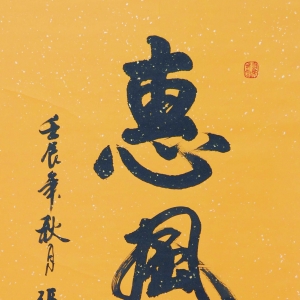 惠風
壬辰年秋月張